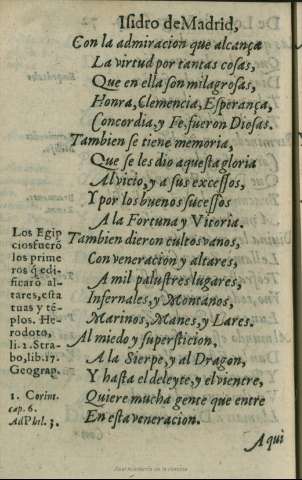 Isidro de Madrid,
Con la admiracion que alcança
La virtud por tantas cosas,
Que en ella son milagrosas,
Honra, Clemencia, Esperança,
Concordia, y Fe, fueron Diosas.
Tambien se tiene memoria,
Que se les dio aquesta gloria
Al vicio, y a sus excessos,
Y por los buenos sucessos
A la Fortuna y Vitoria.
Tambien dieron cultos vanos,
Con veneracion y altares,
A mil palustres lugares,
Infernales, y Montanos,
Marinos, Manes, y Lares.
Al miedo y supersticion,
A la Sierpe, y al Dragon,
Y hasta el deleyte, y el vientre,
Quiere mucha gente que entre
En esta veneracion.
Aqui
Los Egip
cios fuerõ
los prime
ros q̃ edi-
ficarõ al-
tares, esta
tuas y tẽ-
plos. He-
rodoto,
li. 2. Stra-
bo, lib. 17.
Geograp.
1. Corint.
cap. 6.
Ad Phil. 3.